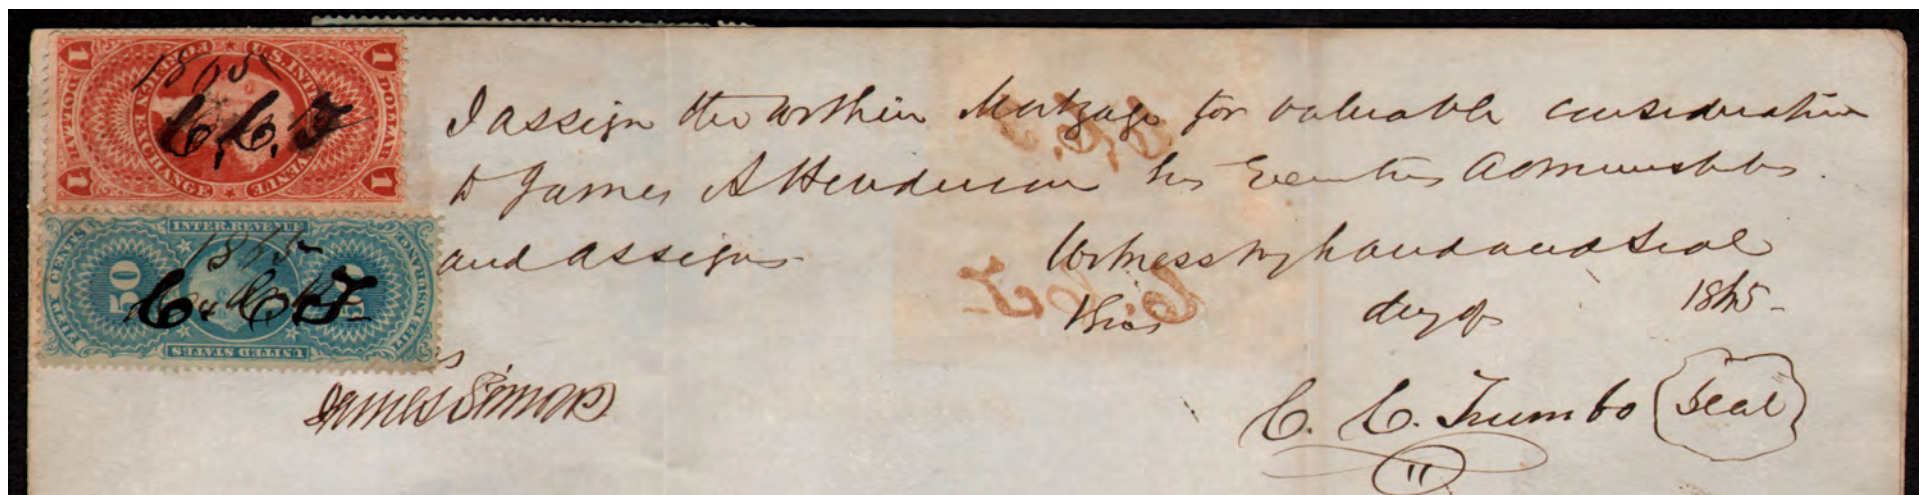 1 DOLLAR
U.S. INTER. REVENUE
FOREIGN EXCHANGE
DOLLAR 1
1865
C. C. T
INTER. REVENUE
FIFTY CENTS
50
50
INSURANCE
UNITED STATES
1865
C. C. T
I assign the within Mortgage for valuable consideration
to James A Henderson his Executors Administrators
and assigns Witness my hand and Seal
this day of 1865
James Simons
C. C. Trumbo Seal